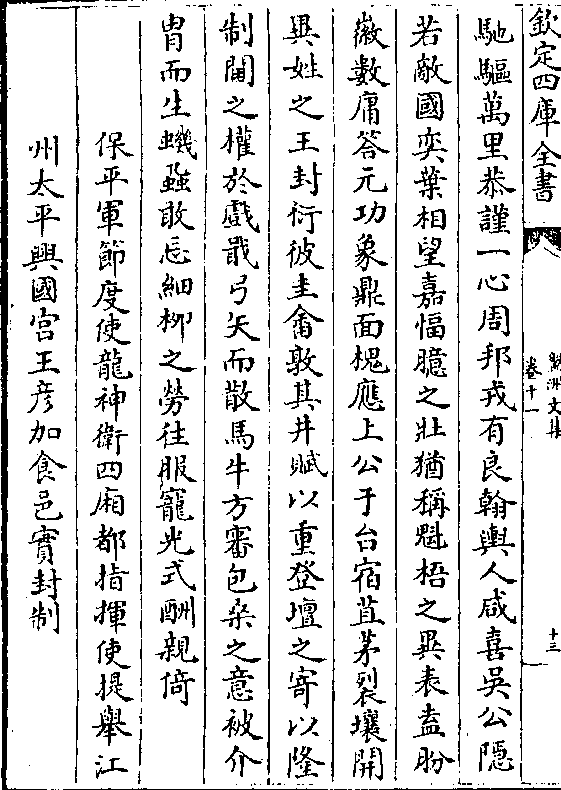 欽定四庫全書
盤洲文集
卷十一
十三
馳驅萬里恭謹一心周邦戎有良翰輿人咸喜吳公隱
若敵國奕葉相望嘉愊臆之壯猶稱魁梧之異表盍肦
徽數庸答元功象鼎面槐應上公于台宿苴茅裂壤開
異姓之王封衍彼圭畬敦其井賦以重登壇之寄以隆
制閫之權於戲戢弓矢而散馬牛方審包桑之意被介
胄而生蟣蝨敢忘細柳之勞往服寵光式酬親倚
保平軍節度使龍神衛四廂都指揮使提舉江
州太平興國宮王彦加食邑實封制